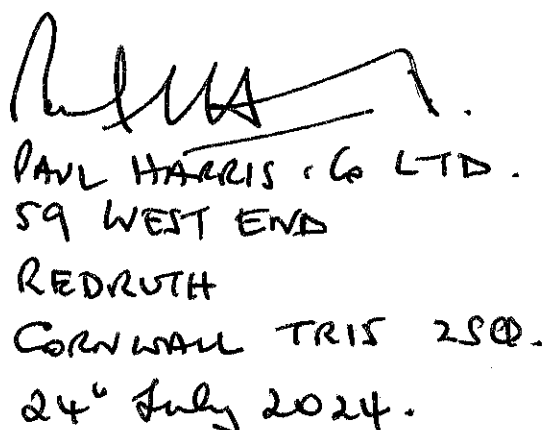 PAUL HARRIS & Co LTD.
59 WEST END
REDRUTH
CORNWALL TR15 2SQ.
24th July 2024.